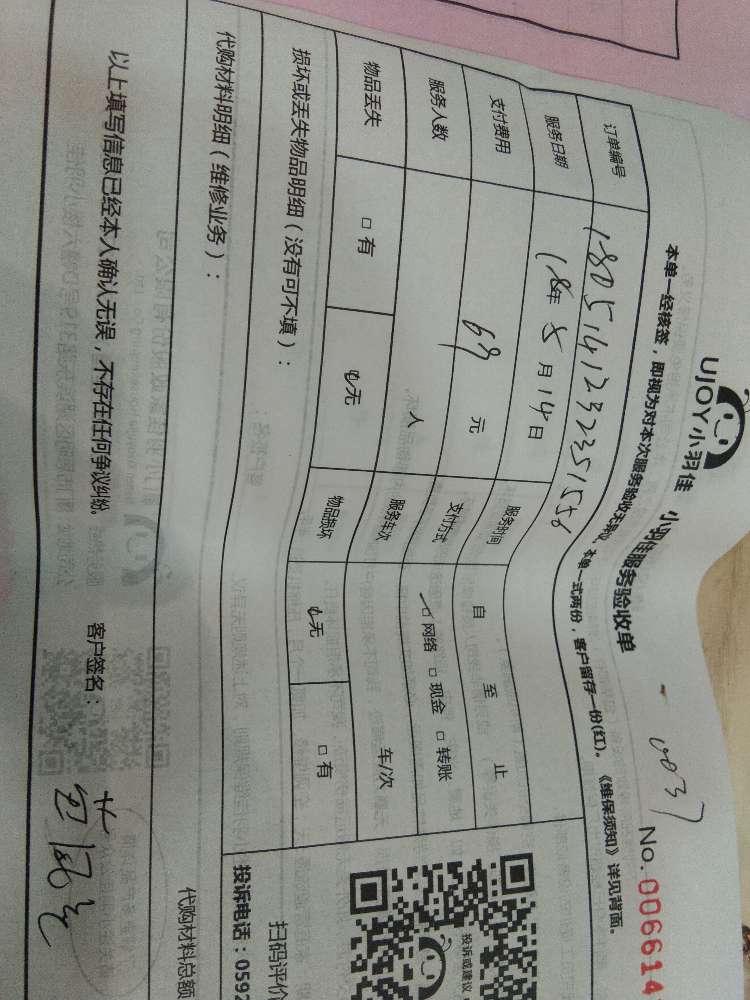 UJOY小羽佳 小羽佳服务验收单
0037
No.006614
本单一经核签，即视为对本次服务验收无异议，本单一式两份，客户留存一份(红)。《维保须知》详见背面。
订单编号
服务日期 18年 5月14日 服务时间 自 至 止
支付费用 69 元 支付方式 网络 现金 转账
服务人数 人 服务车次 车/次
物品丢失 有 无 物品损坏 无 有
损坏或丢失物品明细（没有可不填）：
代购材料明细（维修业务）：
代购材料总额
以上填写信息已经本人确认无误，不存在任何争议纠纷。 客户签名：
投诉或建议
扫码评价
投诉电话：0592